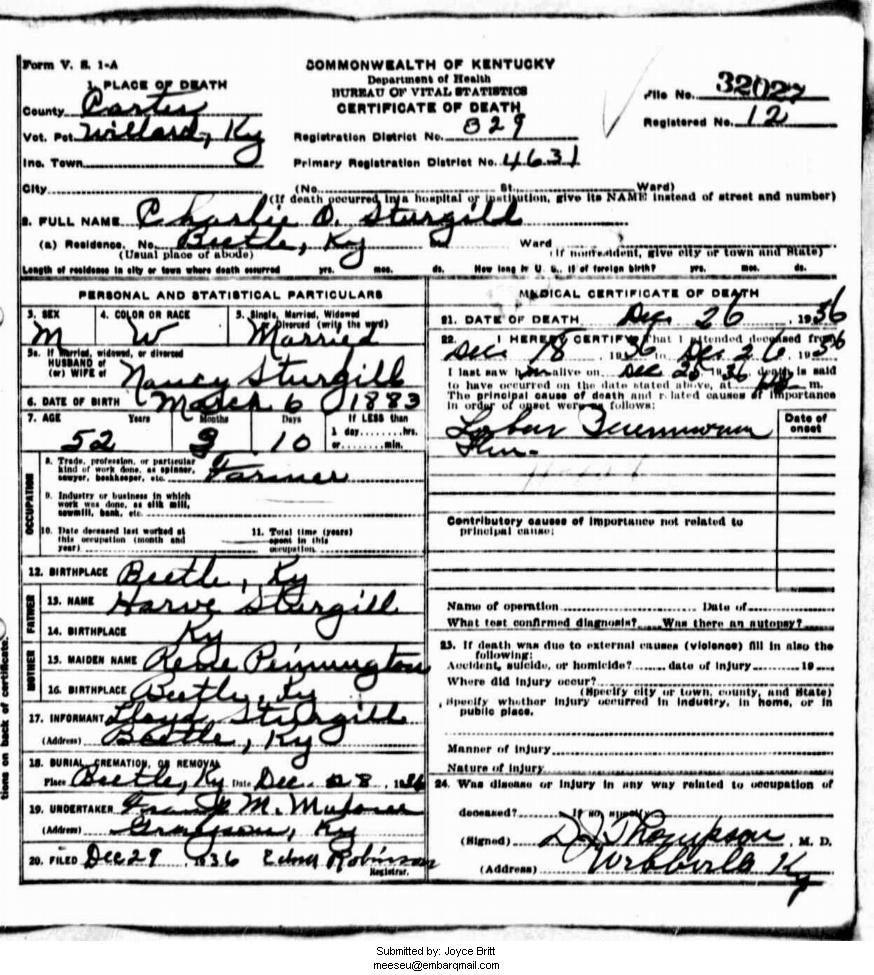 Form V. S. 1-A
COMMONWEALTH OF KENTUCKY
Department of Health
BUREAU OF VITAL STATISTICS
CERTIFICATE OF DEATH
File No. 32027
Registered No. 12
1. PLACE OF DEATH
County Carter
Vot. Pct. Willard, Ky
Inc. Town
City
Registration District No. 829
Primary Registration District No. 4631
(No. St. Ward)
(If death occurred in a hospital or institution, give its NAME instead of street and number)
2. FULL NAME Charlie O. Sturgill
(a) Residence. No. Beetle, Ky St. Ward
(Usual place of abode) (If nonresident, give city or town and State)
Length of residence in city or town where death occurred yrs. mos. ds. How long in U. S., if of foreign birth? yrs. mos. ds.
PERSONAL AND STATISTICAL PARTICULARS
3. SEX M
4. COLOR OR RACE W
5. Single, Married, Widowed or Divorced (write the word) Married
5a. If married, widowed, or divorced
HUSBAND of
(or) WIFE of Nancy Sturgill
6. DATE OF BIRTH March 6 1883
7. AGE 52 Years 9 Months 10 Days
If LESS than
1 day........hrs.
or........min.
OCCUPATION
8. Trade, profession, or particular
kind of work done, as spinner,
sawyer, bookkeeper, etc. Farmer
9. Industry or business in which
work was done, as silk mill,
sawmill, bank, etc.
10. Date deceased last worked at
this occupation (month and
year)
11. Total time (years)
spent in this
occupation
12. BIRTHPLACE Beetle, Ky
FATHER
13. NAME Harve Sturgill
14. BIRTHPLACE Ky
MOTHER
15. MAIDEN NAME Pennington
16. BIRTHPLACE Beetle, Ky
17. INFORMANT Lloyd Sturgill
(Address) Beetle, Ky
18. BURIAL, CREMATION, OR REMOVAL
Place Beetle, Ky Date Dec 28, 1936
19. UNDERTAKER Frank M.
(Address) Grayson, Ky
20. FILED Dec 29 1936 Robinson
Registrar.
MEDICAL CERTIFICATE OF DEATH
21. DATE OF DEATH Dec 26, 1936
22. I HEREBY CERTIFY, That I attended deceased from
Dec 18, 1936 to Dec 26, 1936
I last saw him alive on Dec 25, 1936 death is said
to have occurred on the date stated above, at m.
The principal cause of death and related causes of importance
in order of onset were as follows:
Date of
onset
Lobar
Contributory causes of importance not related to
principal cause:
Name of operation Date of
What test confirmed diagnosis? Was there an autopsy?
23. If death was due to external causes (violence) fill in also the
following:
Accident, suicide, or homicide? date of injury 19
Where did injury occur?
(Specify city or town, county, and State)
Specify whether injury occurred in industry, in home, or in
public place.
Manner of injury
Nature of injury
24. Was disease or injury in any way related to occupation of
deceased? If so, specify
(Signed) D J Thompson, M. D.
(Address) Webbville Ky
tions on back of certificate.
Submitted by: Joyce Britt
meeseu@embarqmail.com